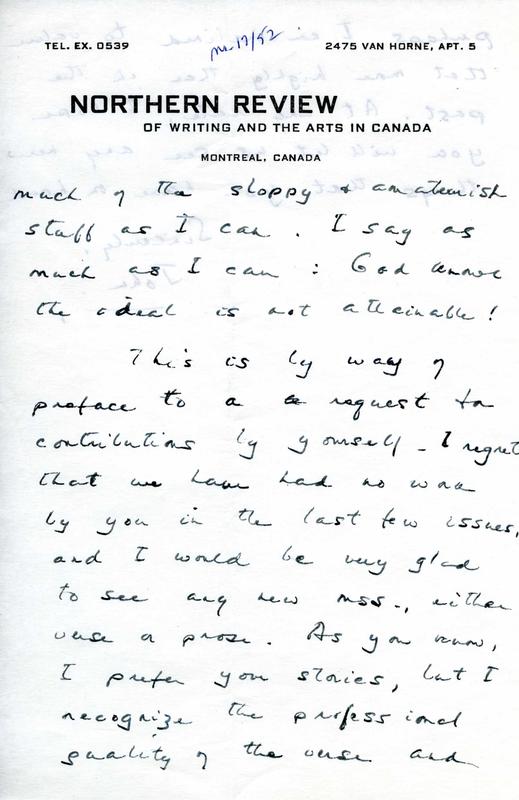 TEL. EX. 0539
2475 VAN HORNE, APT. 5
NORTHERN REVIEW
OF WRITING AND THE ARTS IN CANADA
MONTREAL, CANADA
much of the sloppy & amateurish
stuff as I can. I say as
much as I can: God knows
the ideal is not attainable!
This is by way of
preface to a request for
contributions by yourself - I regret
that we have had no work
by you in the last few issues,
and I would be very glad
to see any new mss., either
verse or prose. As you know,
I prefer your stories, but I
recognize the professional
quality of the verse and